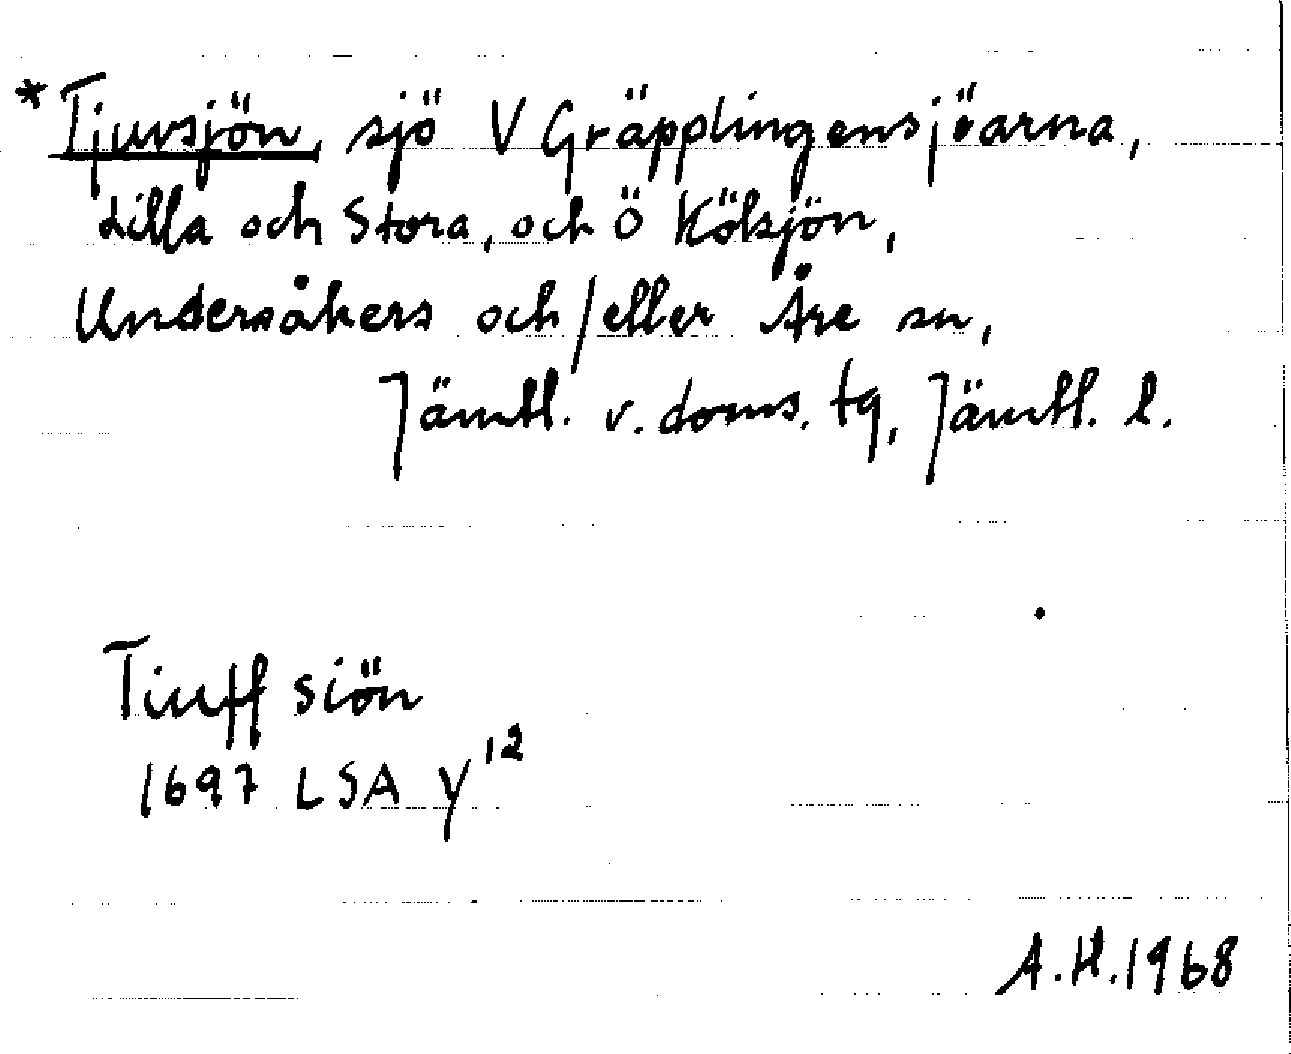 *Tjuvsjön, sjö V Gräpplingensjöarna,
Lilla och Stora, och Ö Kölsjön,
Undersåkers och/eller Åre sn,
Jämtl. v. doms. tg, Jämtl. l.
Tiuff siön
1697 LSA Y12
A.H.1968